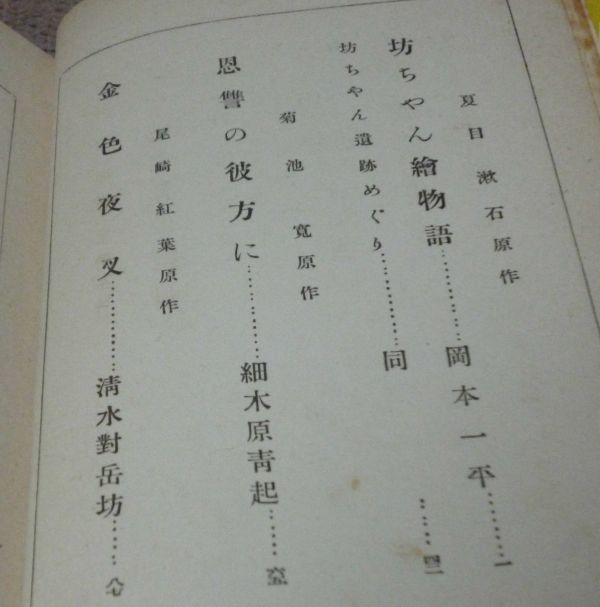 夏目漱石原作
坊ちやん繪物語……………岡本一平………一
坊ちやん遺跡めぐり……………同……
菊池寛原作
恩讐の彼方に……………細木原青起……
尾崎紅葉原作
金色夜叉……………清水對岳坊……